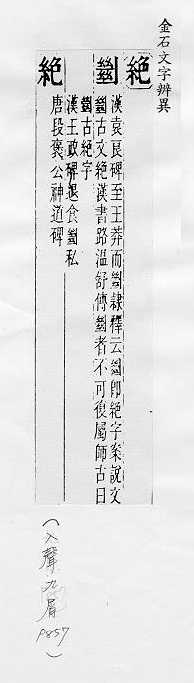 金石文字辨異
絕
𢇍
漢袁良碑至王莽而𢇍隸釋云𢇍即絕字案說文
𢇍古文絕漢書路溫舒傳𢇍者不可復屬師古曰
𢇍古絕字
漢王政碑退食𢇍私
絕
唐段褒公神道碑
(入聲九屑
P857)